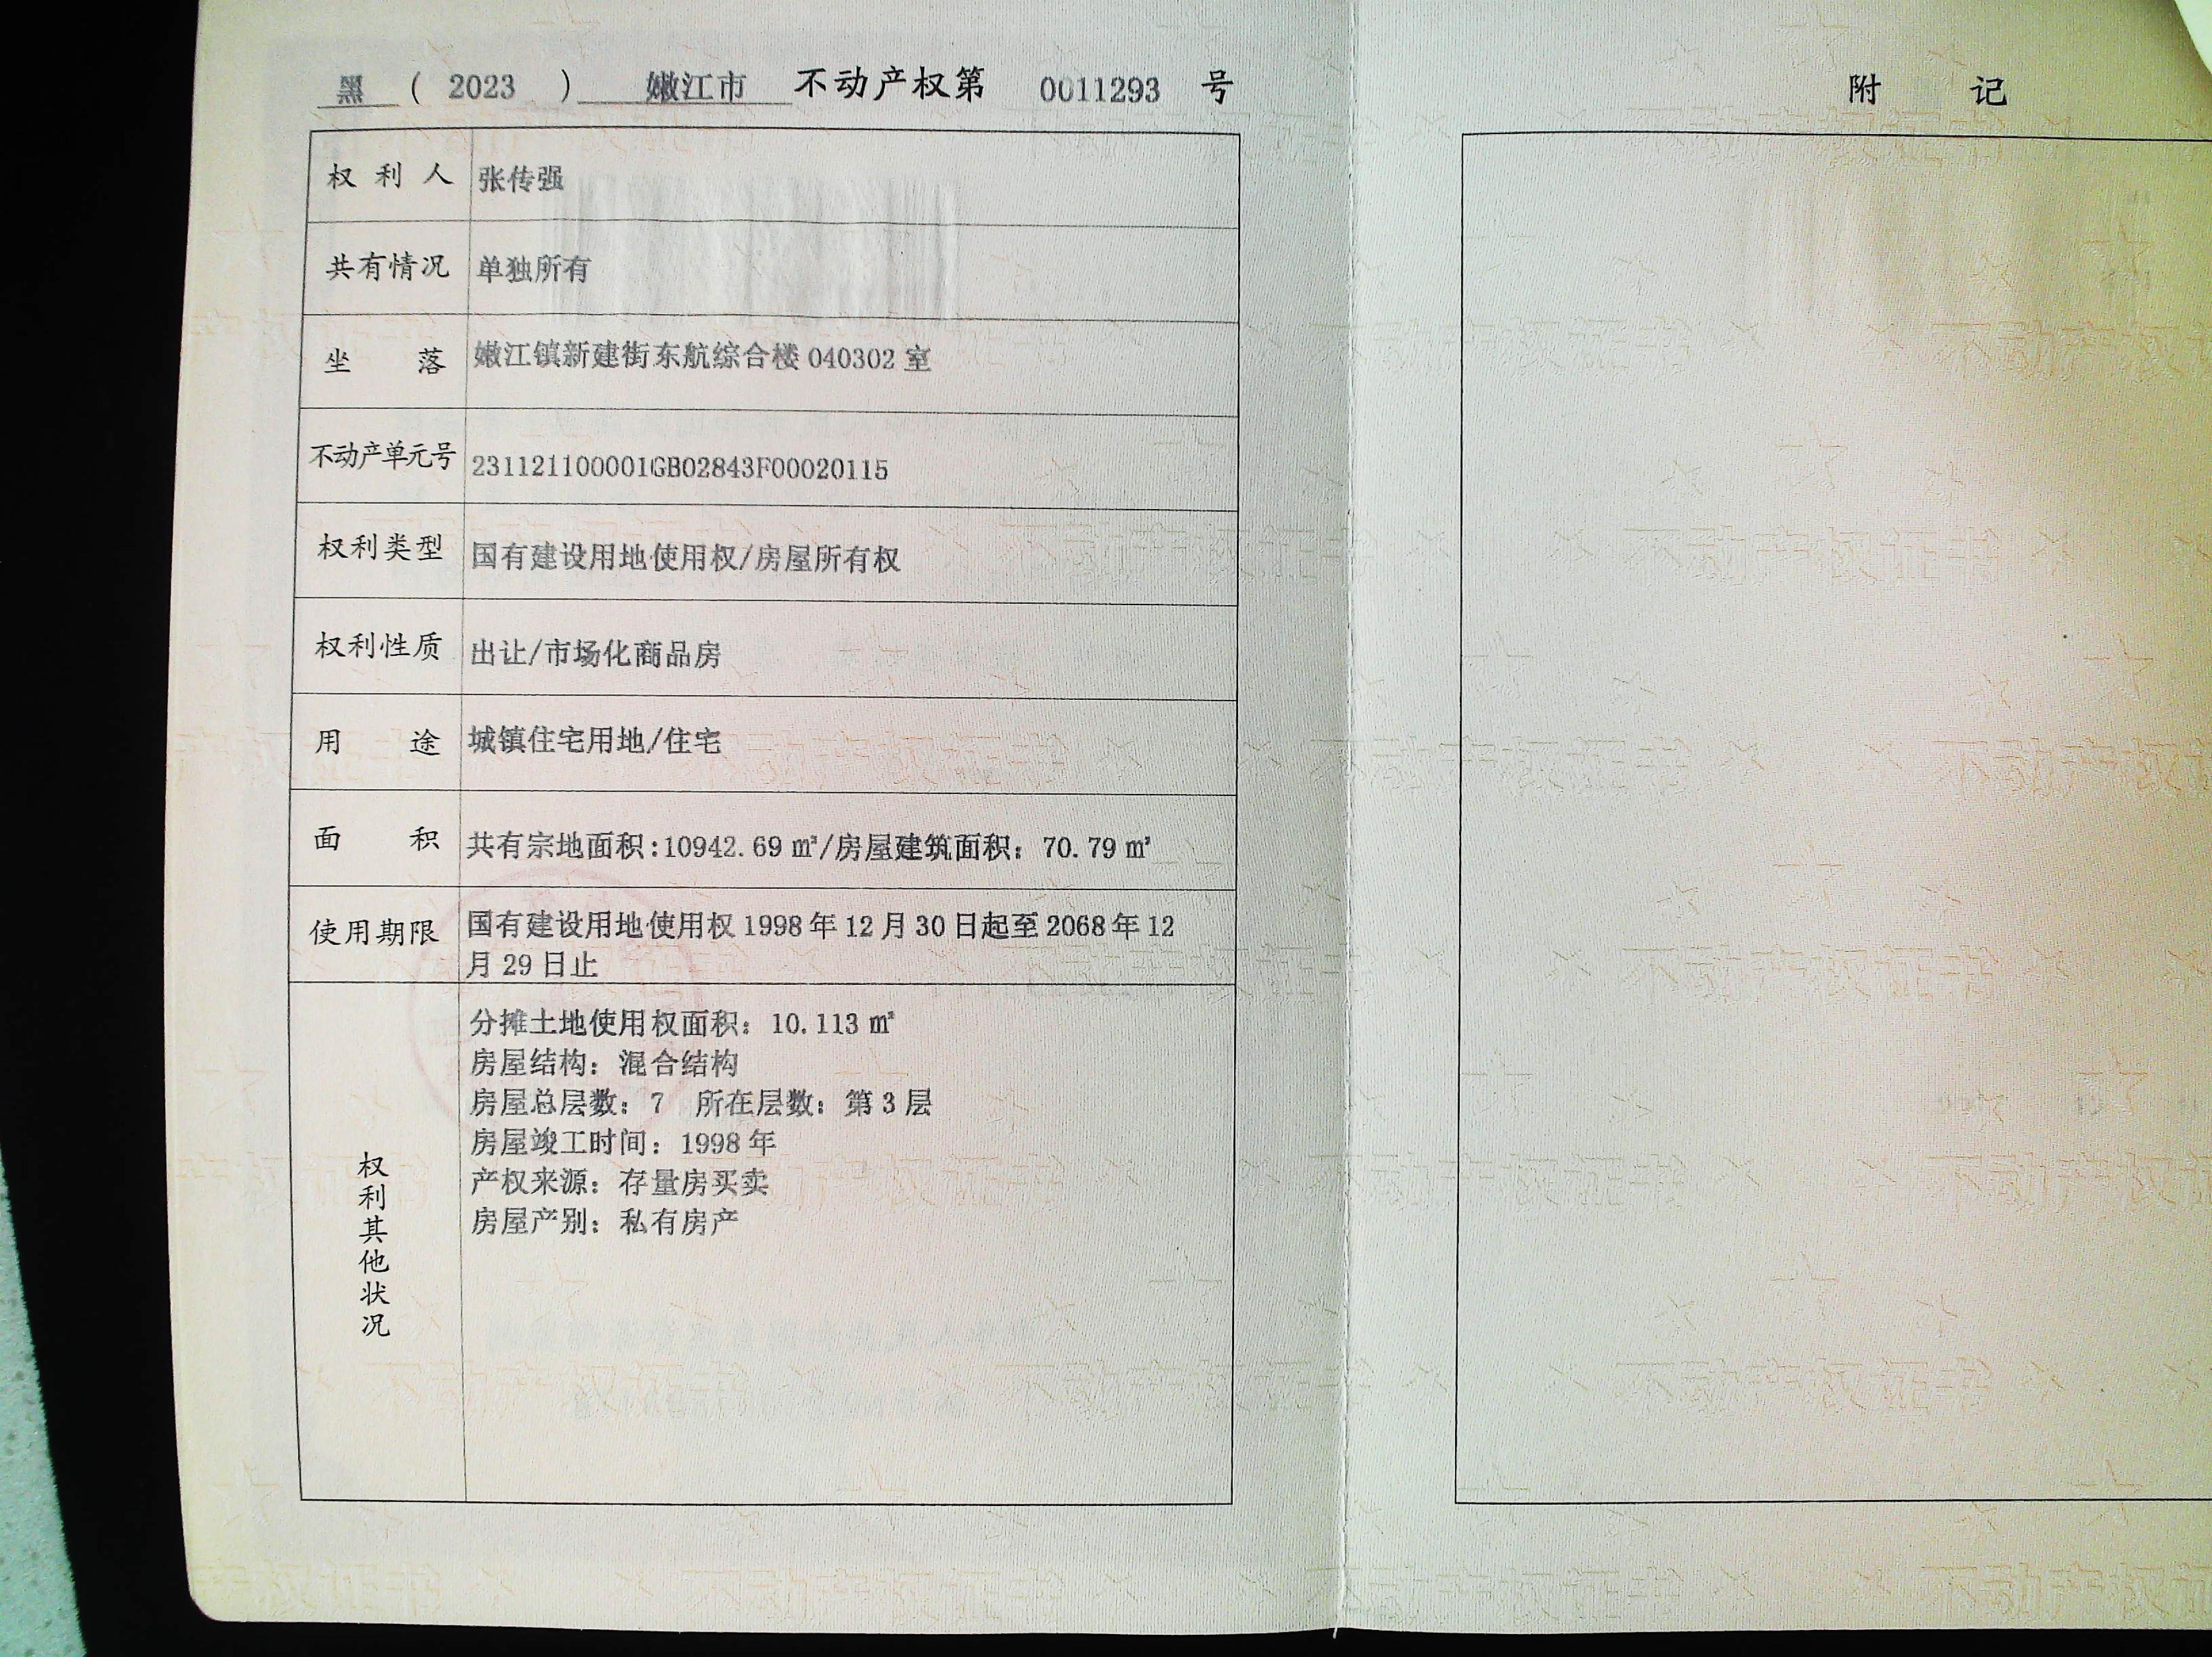 黑 （ 2023 ） 嫩江市 不动产权第 0011293 号
权利人 张传强
共有情况 单独所有
坐落 嫩江镇新建街东航综合楼 040302 室
不动产单元号 231121100001GB02843F00020115
权利类型 国有建设用地使用权/房屋所有权
权利性质 出让/市场化商品房
用途 城镇住宅用地/住宅
面积 共有宗地面积:10942.69 ㎡/房屋建筑面积：70.79 ㎡
使用期限 国有建设用地使用权 1998 年 12 月 30 日起至 2068 年 12
月 29 日止
权利其他状况
分摊土地使用权面积：10.113 ㎡
房屋结构：混合结构
房屋总层数：7 所在层数：第 3 层
房屋竣工时间：1998 年
产权来源：存量房买卖
房屋产别：私有房产
附 记